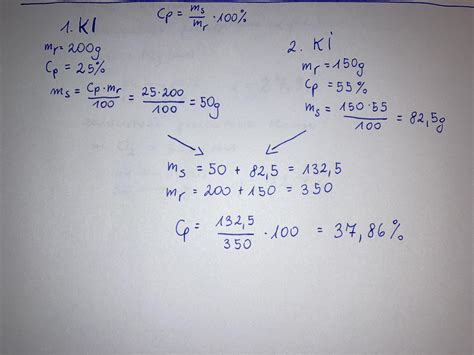 Cp = ms/mr · 100%
1. KI
mr = 200g
Cp = 25%
ms = Cp·mr/100 = 25·200/100 = 50g
2. KI
mr = 150g
Cp = 55%
ms = 150·55/100 = 82,5g
ms = 50 + 82,5 = 132,5
mr = 200 + 150 = 350
Cp = 132,5/350 · 100 = 37,86%